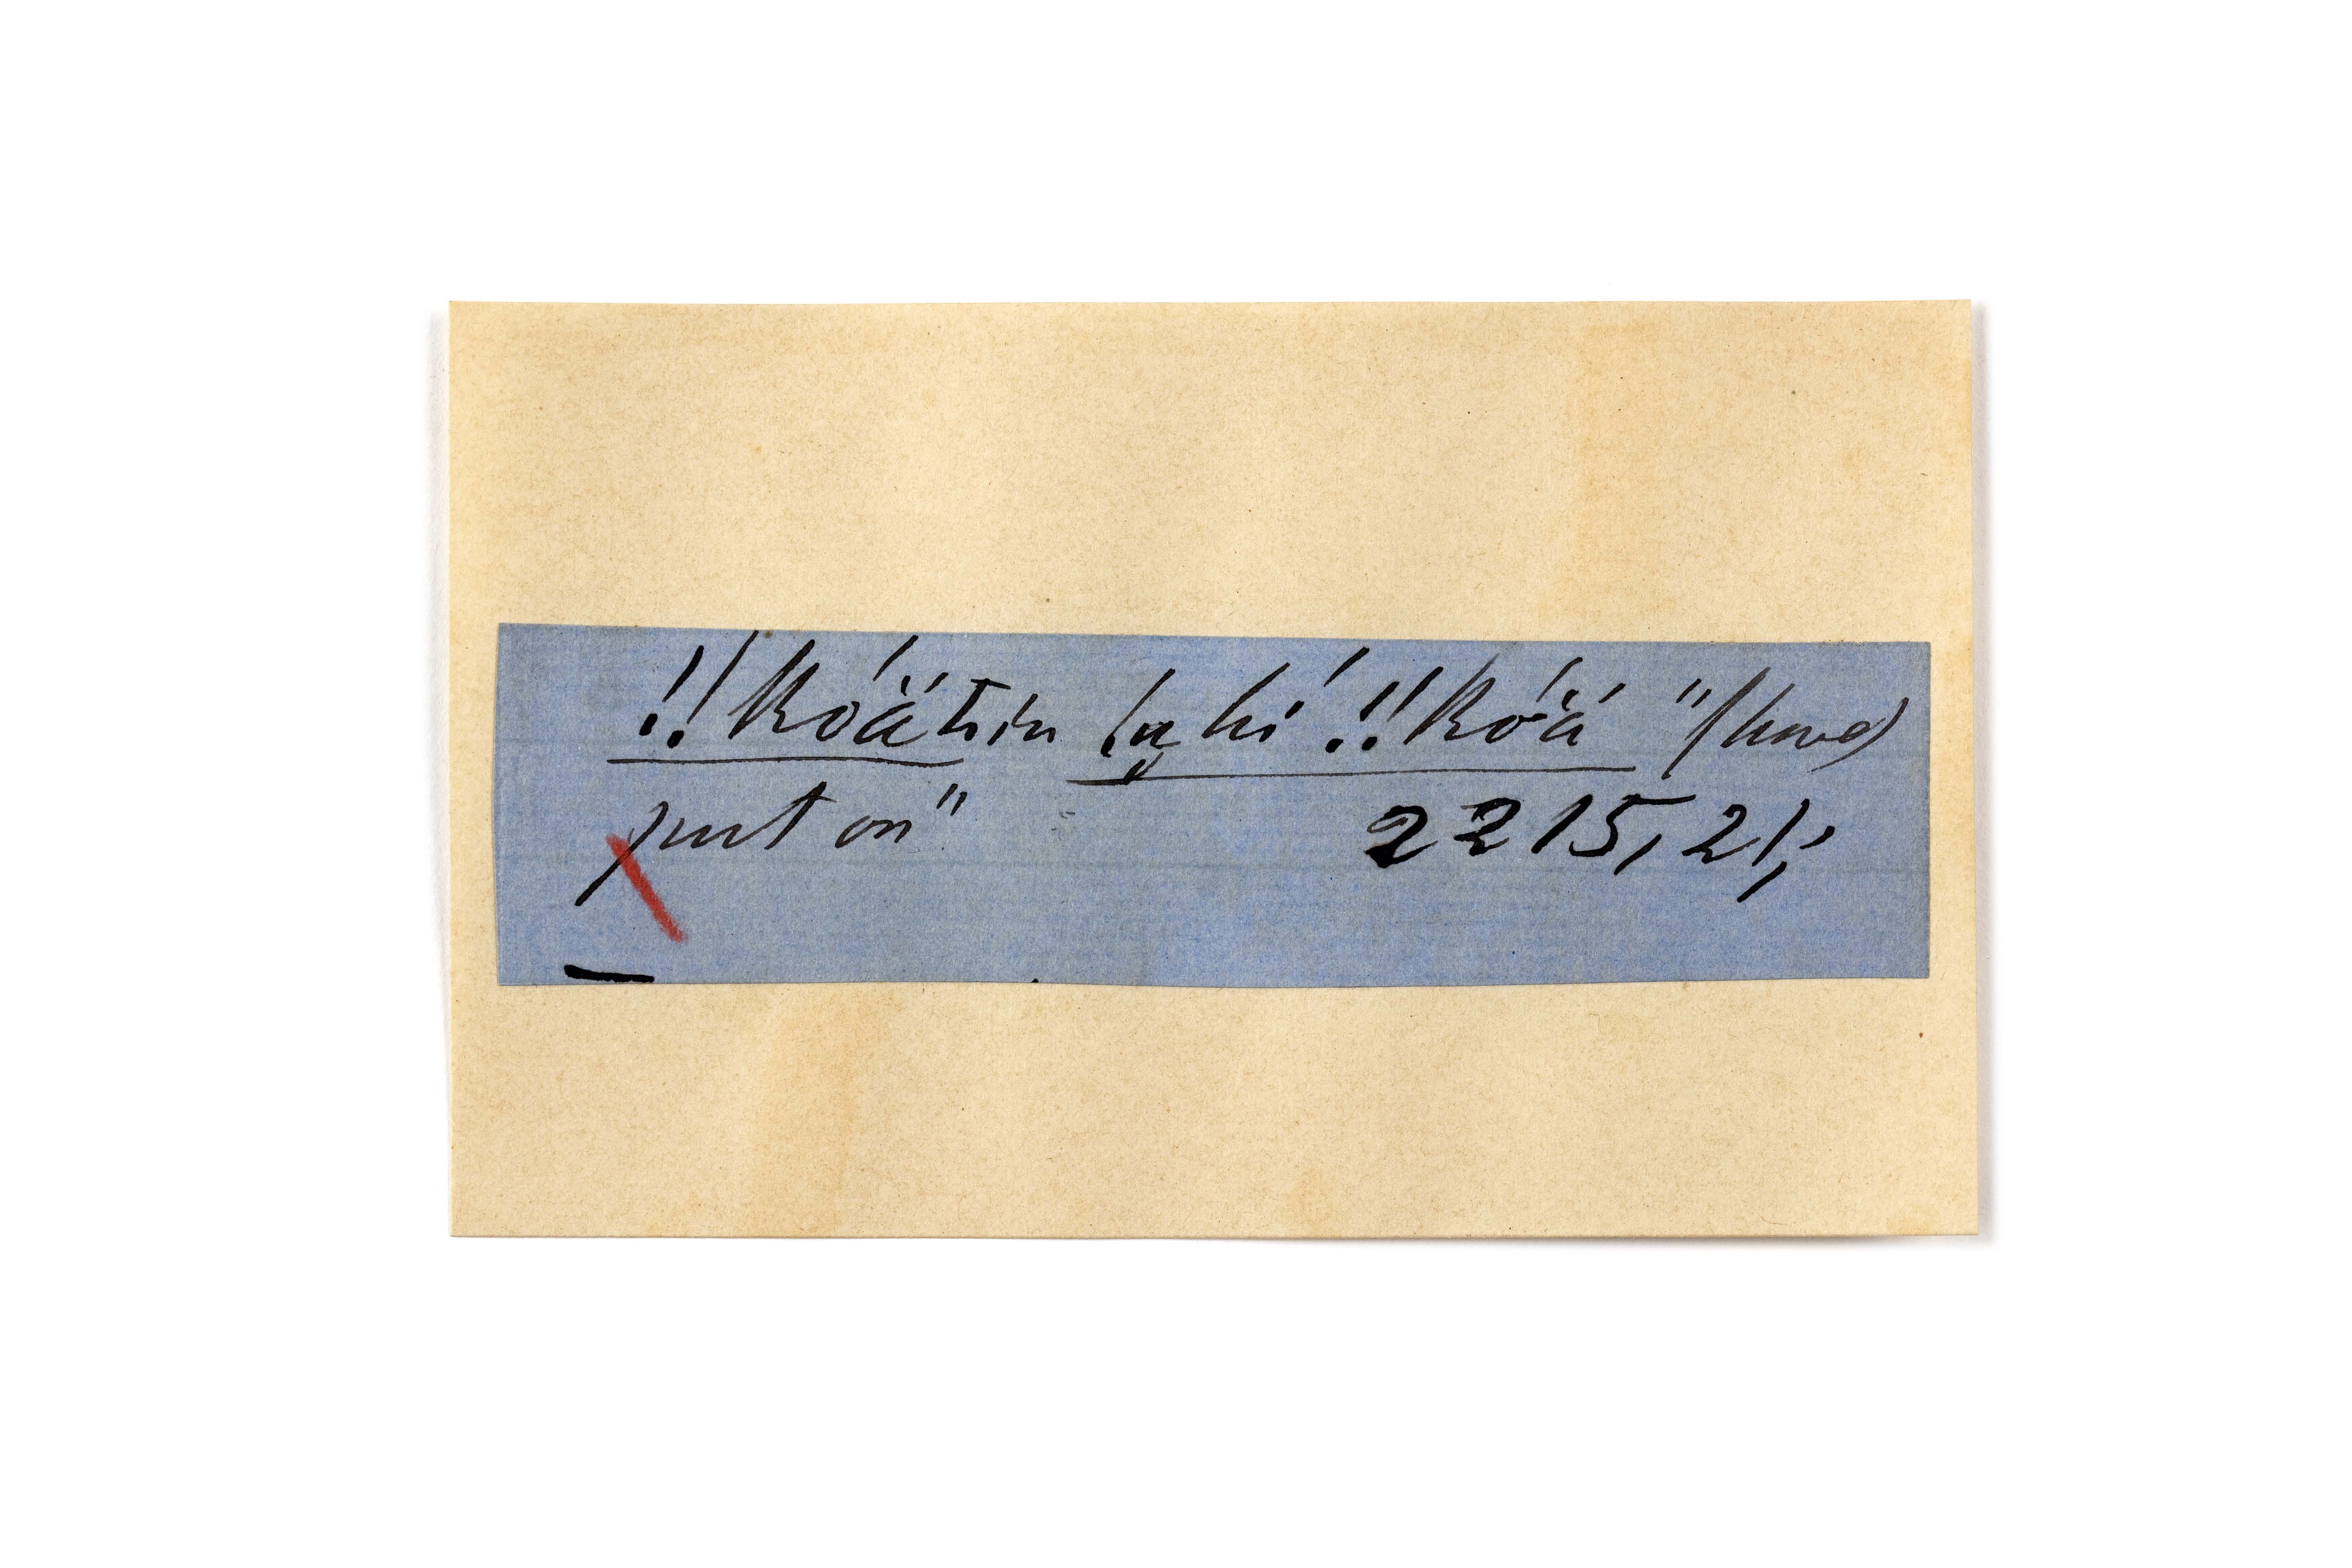 !!kóä́ tin !a̤ hí !!kó'ä́ "(have)
put on" 2215,21;